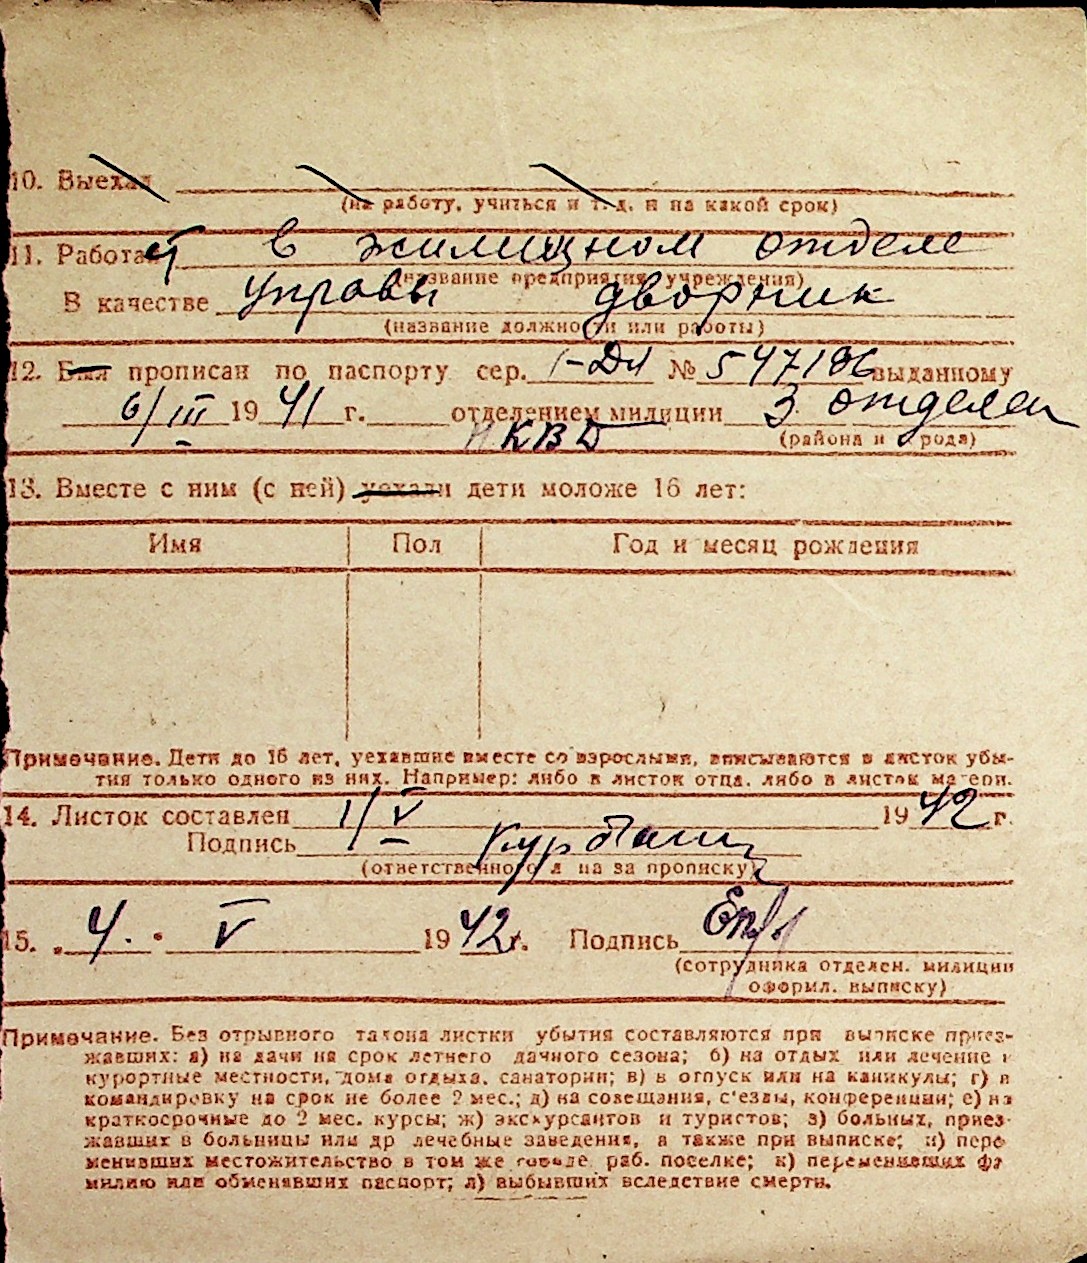 10. Выехал
(на работу, учиться и т. д. и на какой срок)
11. Работает в жилищном отделе
(название предприятия, учреждения)
В качестве управы дворник
(название должности или работы)
12. Был прописан по паспорту сер. I-ДЛ № 547186 выданному
6/III 1941 г. отделением милиции 3 отделен
НКВД (района и города)
13. Вместе с ним (с ней) уехали дети моложе 16 лет:
Имя Пол Год и месяц рождения
Примечание. Дети до 16 лет, уехавшие вместе со взрослыми, вписываются в листок убы-
тия только одного из них. Например: либо в листок отца, либо в листок матери.
14. Листок составлен 1/V 1942 г.
Подпись
(ответственного л на за прописку)
15. „4.“ V 1942 г. Подпись
(сотрудника отделен. милиции
оформл. выписку)
Примечание. Без отрывного талона листки убытия составляются при выписке приез-
жавших: а) на дачи на срок летнего дачного сезона; б) на отдых или лечение в
курортные местности, дома отдыха, санатории; в) в отпуск или на каникулы; г) в
командировку на срок не более 2 мес.; д) на совещания, с'езды, конференции; е) на
краткосрочные до 2 мес. курсы; ж) экскурсантов и туристов; з) больных, приез-
жавших в больницы или др лечебные заведения, а также при выписке; и) пере
менивших местожительство в том же городе, раб. поселке; к) переменивших фа
милию или обменявших паспорт; л) выбывших вследствие смерти.